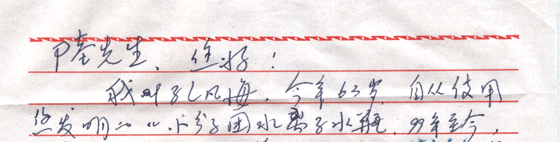 先生，您好：
我叫孔凡梅，今年63岁，自从使用
您发明的“小分子团水离子水瓶，99年至今，